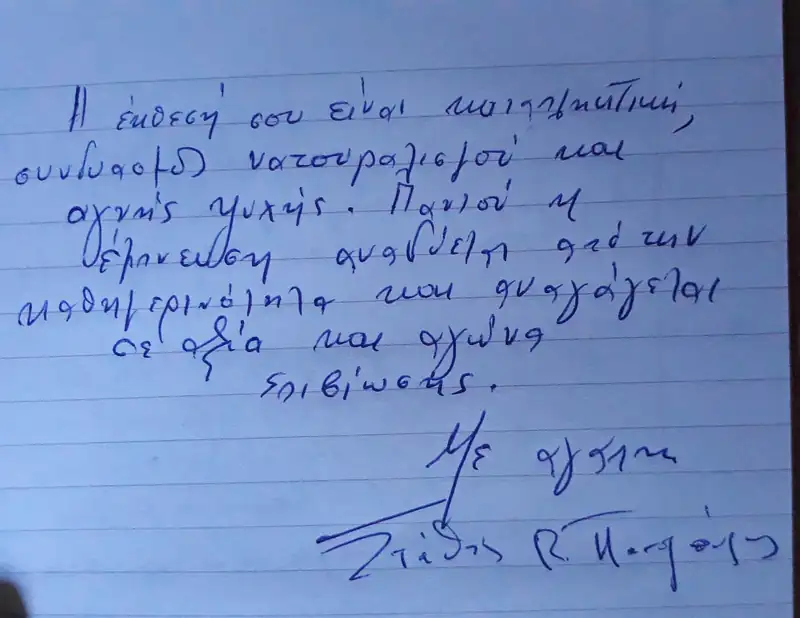 Η έκθεσή σου είναι καταπληκτική,
συνδυασμός νατουραλισμού και
αγνής ψυχής. Παντού η
αναδύεται από την
καθημερινότητα και αναγάγεται
σε αξία και αγώνα
επιβίωσης.
Με αγάπη
Στάθης